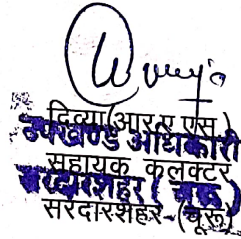 दिव्या(आर.ए.एस.)
उपखण्ड अधिकारी
सहायक कलक्टर
सरदारशहर ( चूरू )
सरदारशहर (चूरू)